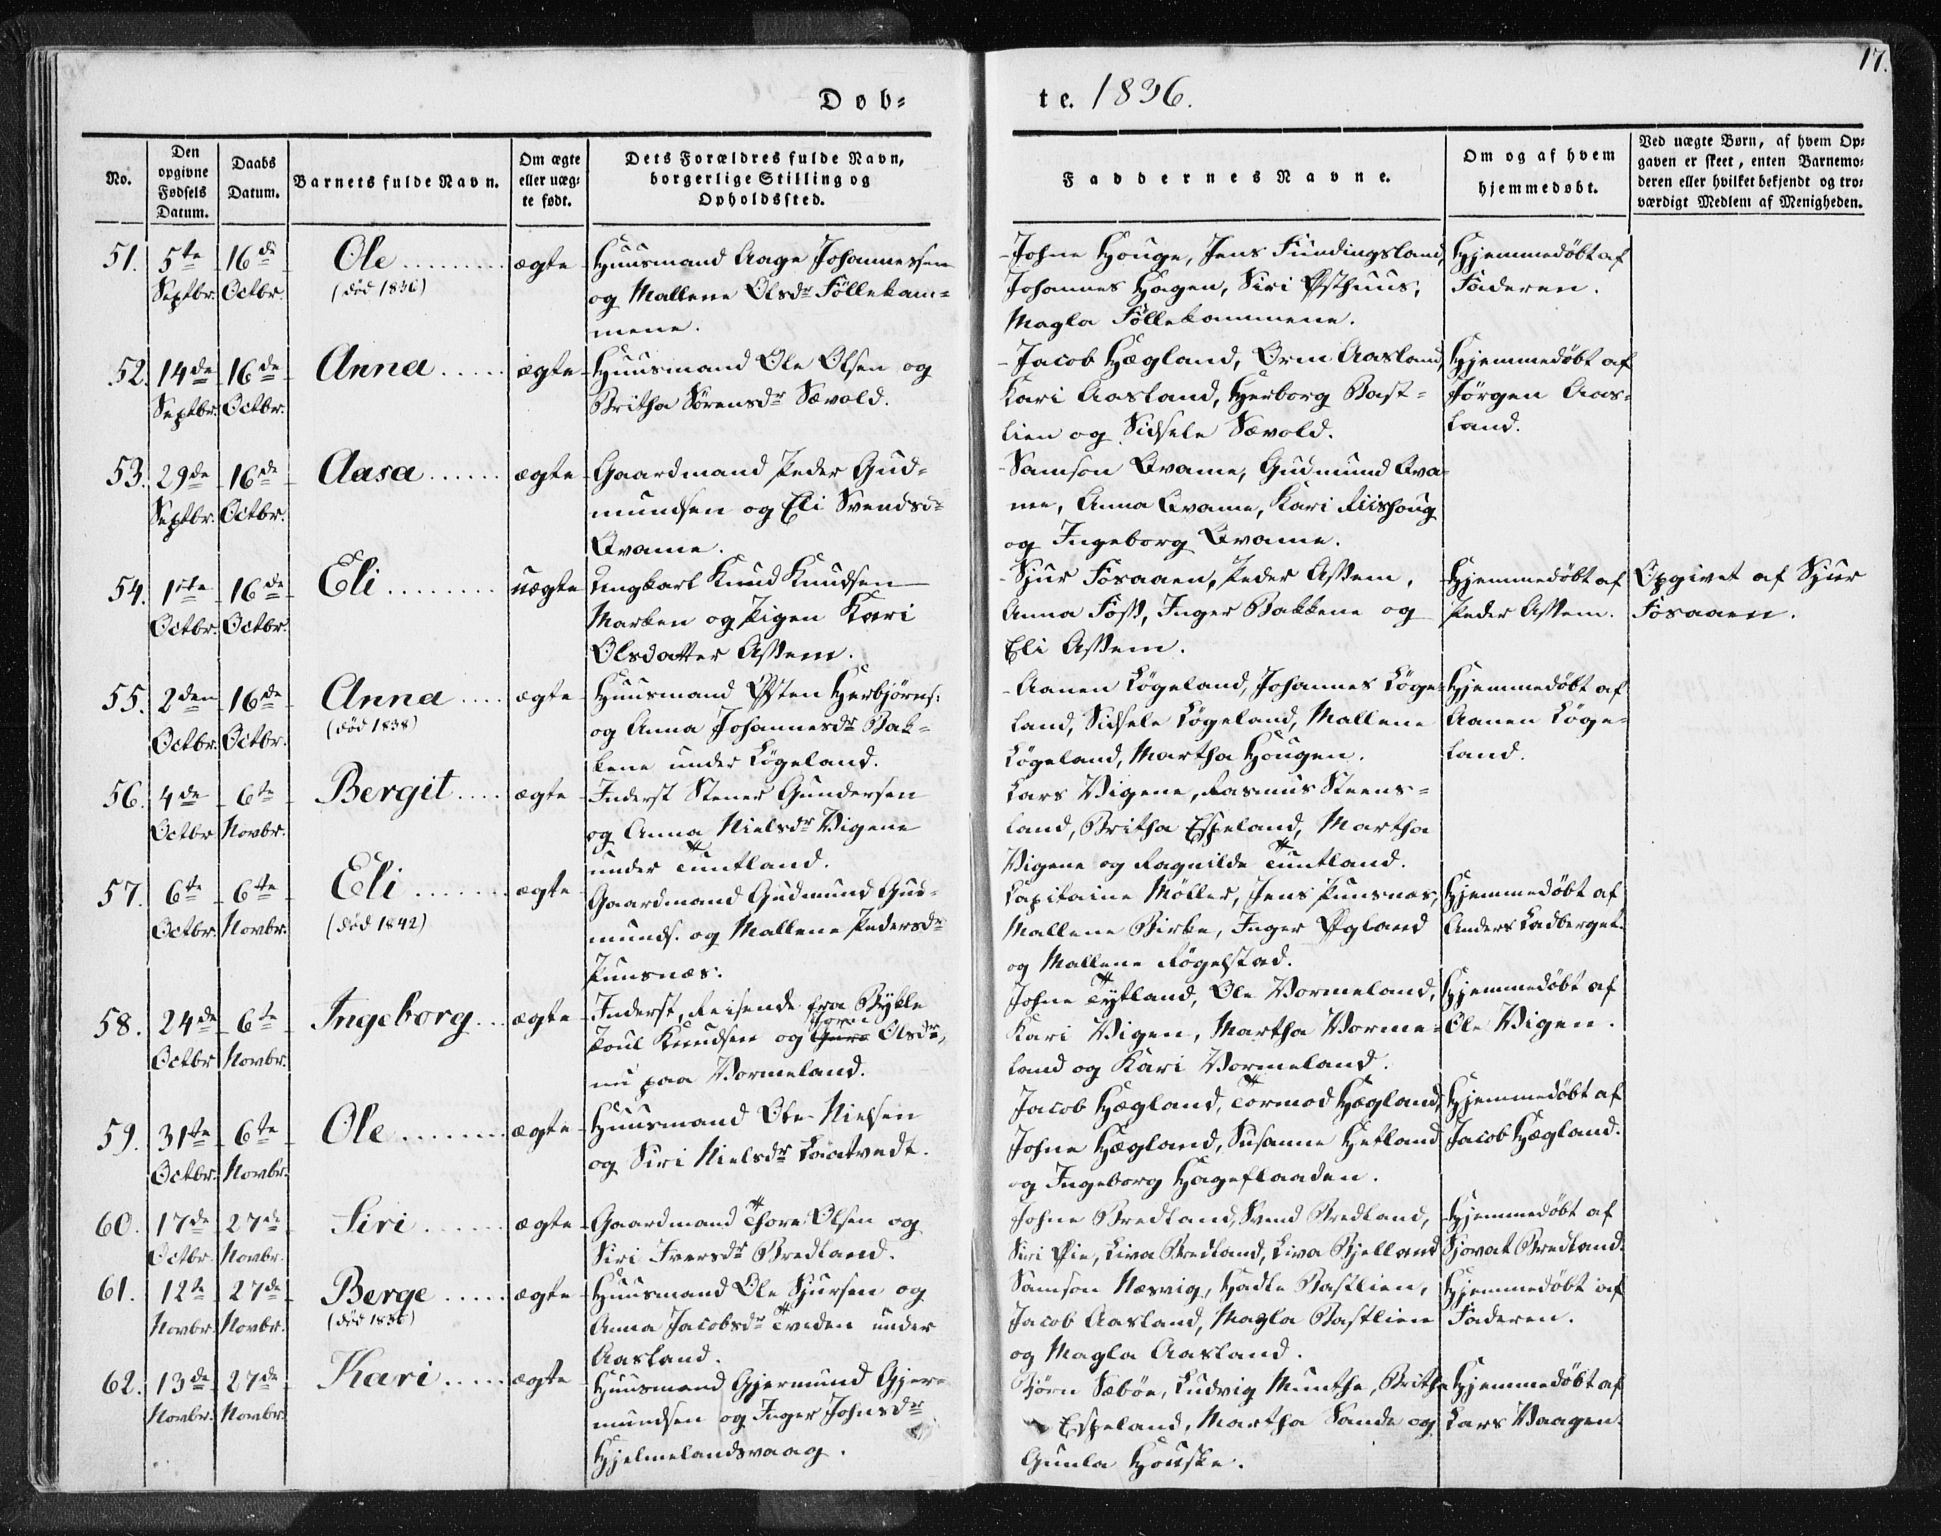 17.
Døb=
te. 1836.
No.
Den
opgivne
Fødsels
Datum.
Daabs
Datum.
Barnets fulde Navn.
Om ægte
eller uæg=
te født.
Dets Forældres fulde Navn,
borgerlige Stilling og
Opholdssted.
Faddernes Navne.
Om og af hvem
hjemmedøbt.
Ved uægte Børn, af hvem Op=
gaven er skeet, enten Barnemo=
deren eller hvilket bekjendt og tro=
værdigt Medlem af Menigheden.
51. 5te Septbr. 16de Octbr.
Ole
(død 1836)
ægte
Huusmand Aage Johannessen
og Mallene Olsdr Föllekam=
mene.
Johne Houge, Jens Fundingsland,
Johannes Hagen, Siri Østhuus,
Magla Föllekammene.
Hjemmedøbt af
Faderen.
52. 14de Septbr. 16de Octbr.
Anna
ægte
Huusmand Ole Olsen og
Britha Sörensdr Sævold.
Jacob Hægland, Orm Aasland,
Kari Aasland, Herborg Bast=
lien og Sidsele Sævold.
Hjemmedøbt af
Jörgen Aas=
land.
53. 29de Septbr. 16de Octbr.
Aasa
ægte
Gaardmand Peder Gud=
mundsen og Eli Svendsdr
Qvame.
Samson Qvame, Gudmund Qva=
me, Anna Qvame, Kari Riishoug
og Ingeborg Qvame.
54. 1ste Octbr. 16de Octbr.
Eli
uægte
Ungkarl Knud Knudsen
Marken og Pigen Kari
Olsdatter Assem.
Sjur Fosaaen, Peder Assem,
Anna Foss, Inger Bakkene og
Eli Assem.
Hjemmedøbt af
Peder Assem.
Opgivet af Sjur
Fosaaen.
55. 2den Octbr. 16de Octbr.
Anna
(død 1838)
ægte
Huusmand Østen Herbjörns:
og Anna Johannesdr Bak=
kene under Lögeland.
Aanen Lögeland, Johannes Löge=
land, Sidsele Lögeland, Mallene
Lögeland, Martha Hougen.
Hjemmedøbt af
Aanen Löge=
land.
56. 4de Octbr 6te Novbr.
Bergit
ægte
Inderst Stener Gundersen
og Anna Nielsdr Vigene
under Tuntland.
Lars Vigene, Rasmus Steens=
land, Britha Espeland, Martha
Vigene og Ragnilde Tuntland.
57. 6te Octbr. 6te Novbr.
Eli
(død 1842)
ægte
Gaardmand Gudmund Gud=
munds. og Mallene Pedersdr
Puusnæs:
Capitaine Möller, Jens Puusnæs,
Mallene Birke, Inger Øgland
og Mallene Røgelstad.
Hjemmedøbt af
Anders Ladberget.
58. 24de Octbr 6te Novbr.
Ingeborg
ægte
Inderst, Reisende fra Bykle
Poul Knudsen og Joren Olsdr,
nu paa Vormeland.
Johne Tytland, Ole Vormeland,
Kari Vigen, Martha Vorme=
land og Kari Vormeland.
Hjemmedøbt af
Ole Vigen.
59. 31te Octbr. 6te Novbr.
Ole
ægte
Huusmand Ole Nielsen
og Siri Nielsdr Laatvedt.
Jacob Hægland, Tormod Hægland,
Johne Hægland, Susanne Hetland
og Ingeborg Hageflaaden.
Hjemmedøbt af
Jacob Hægland.
60. 17de Octbr. 27de Novbr.
Siri
ægte
Gaardmand Thore Olsen og
Siri Iversdr Bredland.
Johne Bredland, Svend Bredland,
Siri Øie, Liva Bredland, Liva Bjelland
Hjemmedøbt af
Sjovat Bredland.
61. 12te Novbr. 27de Novbr.
Berge
(død 1836)
ægte
Huusmand Ole Sjursen og
Anna Jacobsdr Tveden under
Aasland.
Samson Næsvig, Hadle Bastlien,
Jacob Aasland, Magla Bastlien
og Magla Aasland.
Hjemmedøbt af
Faderen.
62. 13de Novbr. 27de Novbr.
Kari
ægte
Huusmand Gjermund Gjer=
mundsen og Inger Johnsdr
Hjelmelandsvaag.
Björn Sæbøe, Ludvig Munthe, Britha
Espeland, Martha Sande og
Gunla Houske.
Hjemmedøbt af
Lars Vaagen.